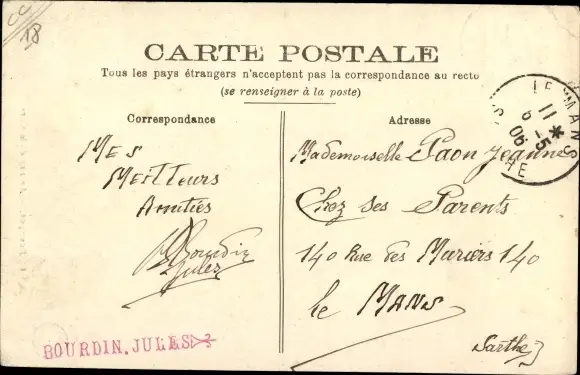 18
CARTE POSTALE
Tous les pays étrangers n'acceptent pas la correspondance au recto
(se renseigner à la poste)
Correspondance
Mes
Meilleurs
Amitiés
Bourdin
Jules
BOURDIN. JULES
Adresse
Mademoiselle Paon Jeanne
Chez ses Parents
140 Rue des Muriers 140
le MANS
Sarthe
LE MANS
11 * 5
6 - 06